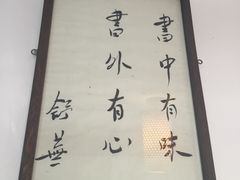 書中有味
書外有心
舒蕪